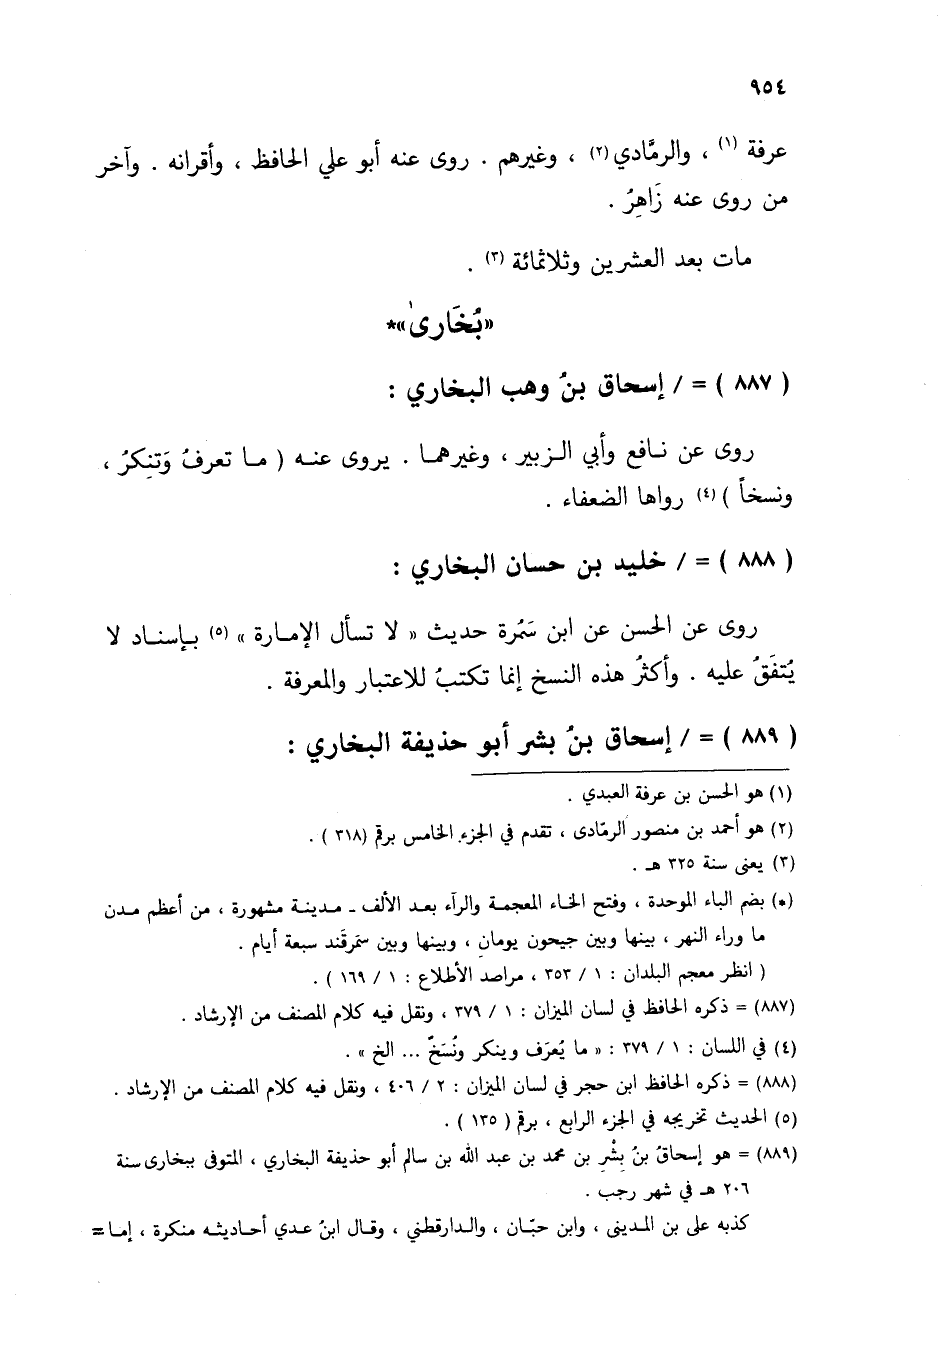 ٩٥٤
عرفة (١) ، والرمَّادي (٢) ، وغيرهم . روى عنه أبو علي الحافظ ، وأقرانه . وآخر
من روى عنه زَاهِرُ .
مات بعد العشرين وثلاثمائة (٣) .
«بُخَارىٰ»*
( ٨٨٧ ) = / إسحاق بنُ وهب البخاري :
روى عن نـافع وأبي الـزبير ، وغيرهمـا . يروى عنـه ( مـا تعرفُ وَتنكِرُ ،
ونسخاً ) (٤) رواها الضعفاء .
( ٨٨٨ ) = / خليد بن حسان البخاري :
روى عن الحسن عن ابن سَمُرة حديث « لا تسأل الإمـارة » (٥) بـإسنـاد لا
يُتفَقُ عليه . وأكثرُ هذه النسخ إنما تكتبُ للاعتبار والمعرفة .
( ٨٨٩ ) = / إسحاق بنُ بشر أبو حذيفة البخاري :
(١) هو الحسن بن عرفة العبدي .
(٢) هو أحمد بن منصور الرمّادى ، تقدم في الجزء الخامس برقم (٣١٨ ) .
(٣) يعنى سنة ٣٢٥ هـ .
(*) بضم الباء الموحدة ، وفتح الخـاء المعجمـة والرآء بعـد الألف ـ مـدينـة مشهورة ، من أعظم مـدن
ما وراء النهر ، بينها وبين جيحون يومانِ ، وبينها وبين سَمَرقَند سبعة أيام .
( انظر معجم البلدان : ١ / ٣٥٣ ، مراصد الأطلاع : ١ / ١٦٩ ) .
(٨٨٧) = ذكره الحافظ في لسان الميزان : ١ / ٣٧٩ ، ونقل فيه كلام المصنف من الإرشاد .
(٤) في اللسان : ١ / ٣٧٩ : « ما يُعرَف وينكر ونُسَخٌ ... الخ » .
(٨٨٨) = ذكره الحافظ ابن حجر في لسان الميزان : ٢ / ٤٠٦ ، ونقل فيه كلام المصنف من الإرشاد .
(٥) الحديث تخريجه في الجزء الرابع ، برقم ( ١٣٥ ) .
(٨٨٩) = هو إسحاقُ بنُ بِشْرِ بن محمد بن عبد الله بن سالم أبو حذيفة البخاري ، المتوفى ببخارى سنة
٢٠٦ هـ في شهر رجب .
كذبه على بن المـدينى ، وابن حبّـان ، والـدارقطني ، وقـال ابنُ عـدي أحـاديثـه منكرة ، إمـا=